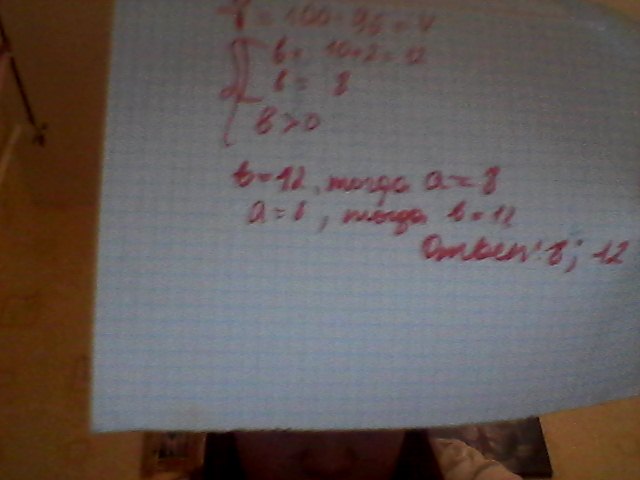 = 100 - 96 = 4
b = 10+2 = 12
b = 8
b > 0
b = 12, тогда a = 8
a = 8, тогда b = 12
Ответ: 8; 12